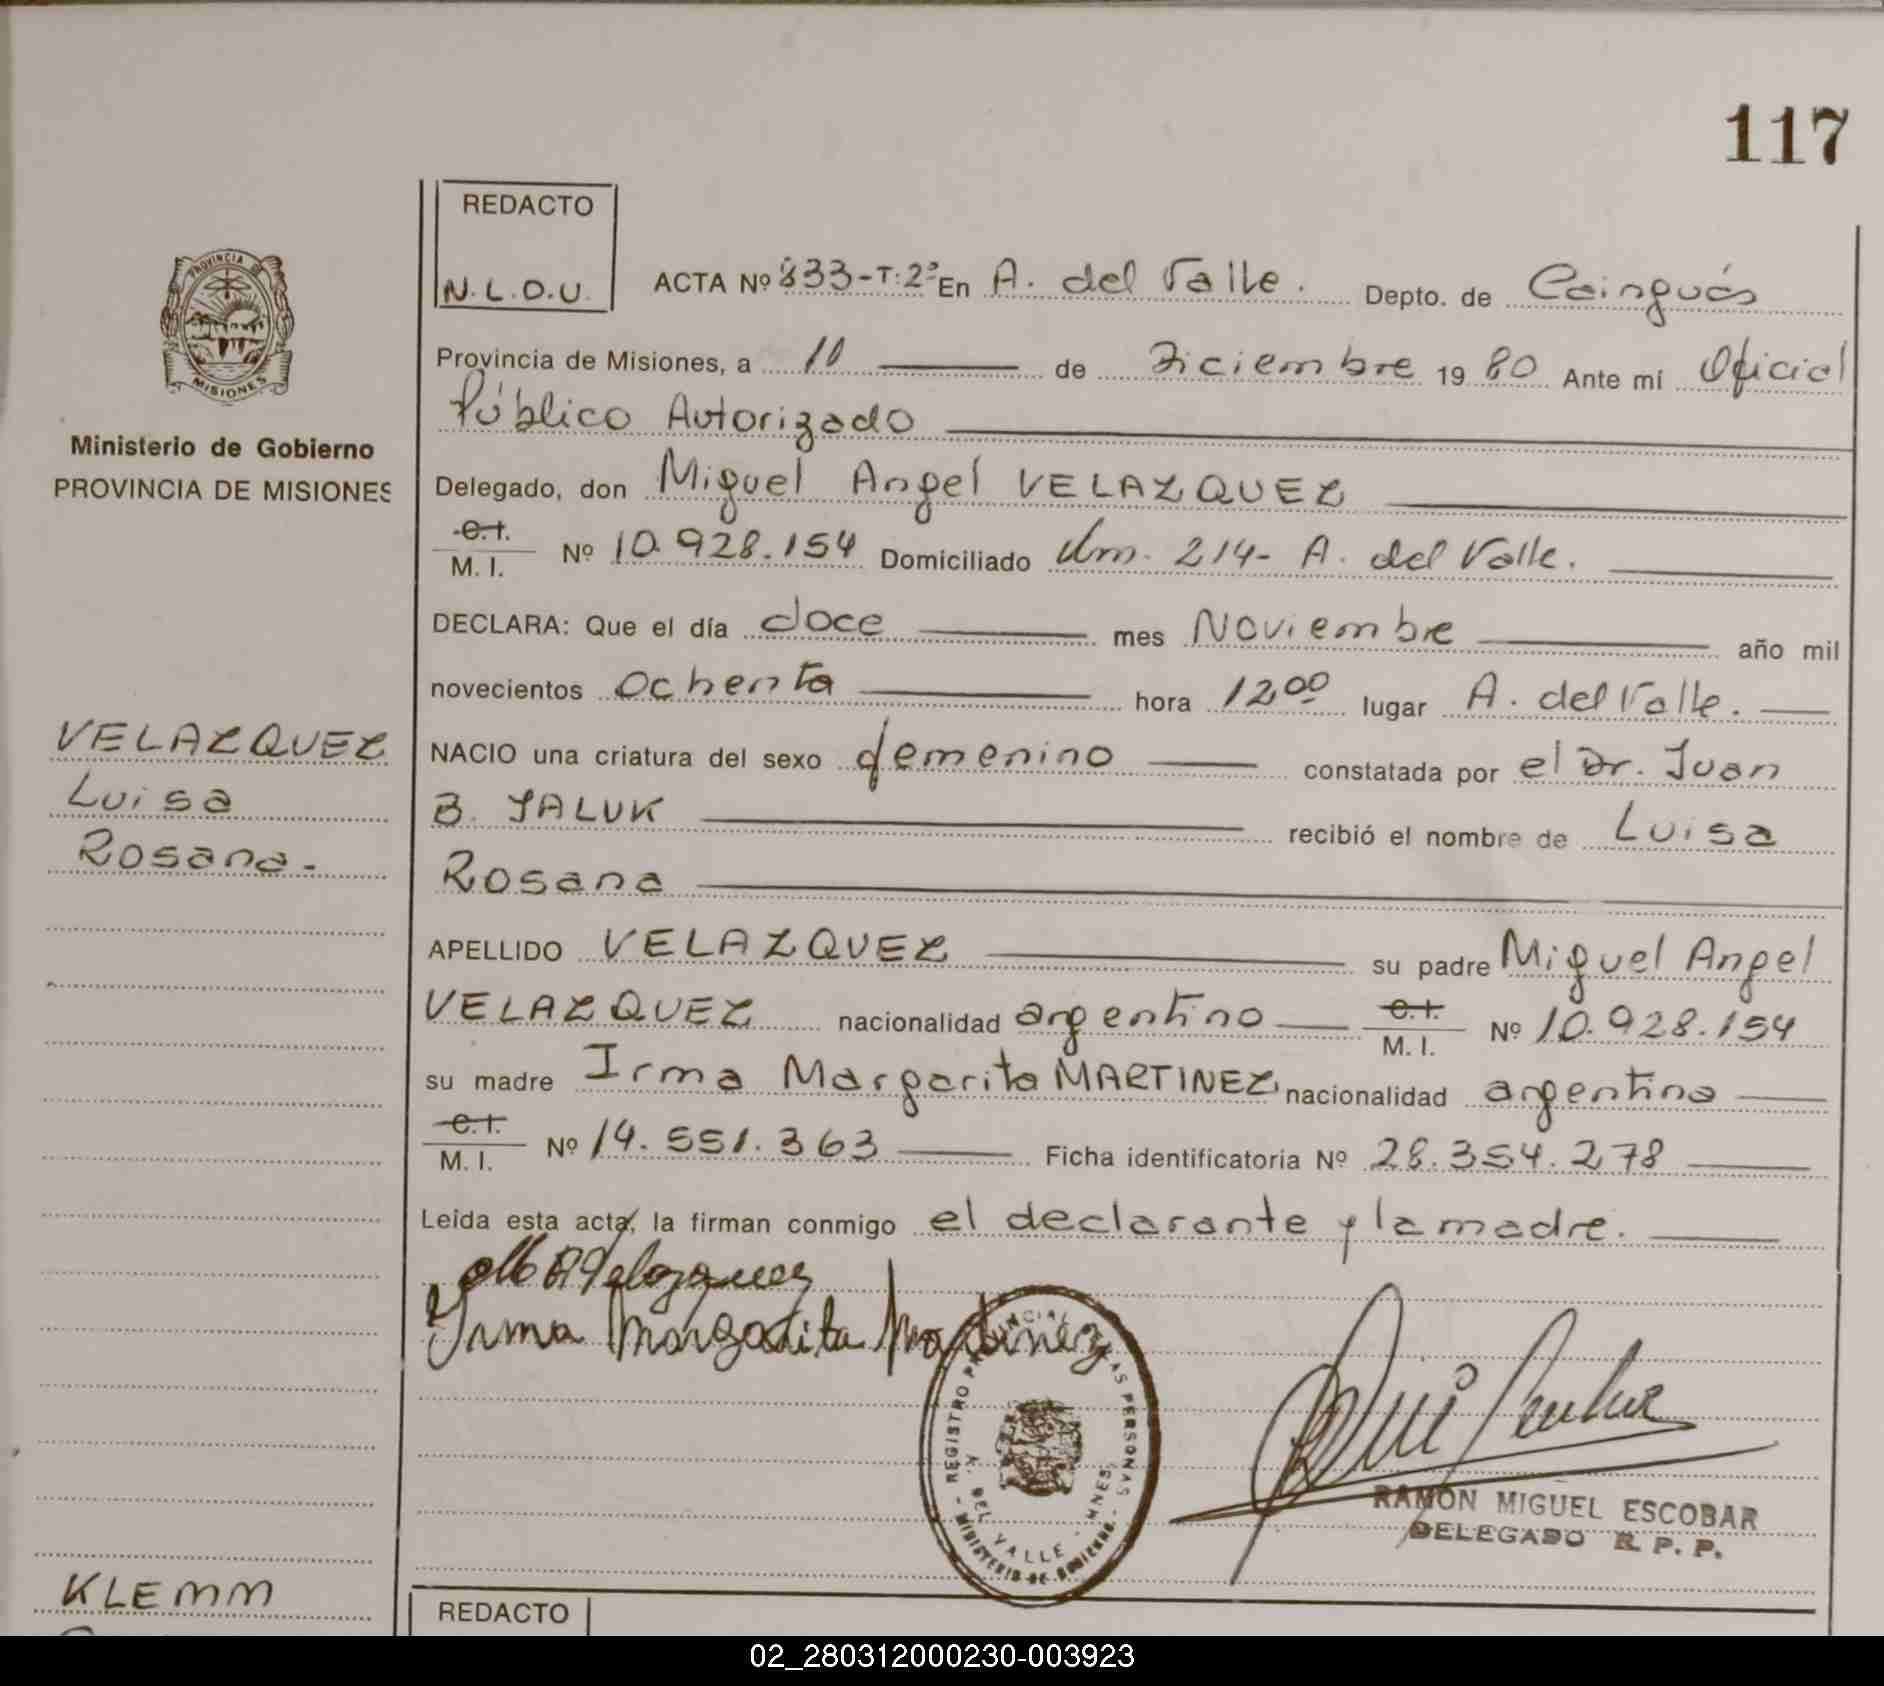 117
REDACTO
N.L.D.U.
PROVINCIA DE
MISIONES
Ministerio de Gobierno
PROVINCIA DE MISIONES
ACTA Nº 833-T:2º En A. del Valle. Depto. de Cainguás
Provincia de Misiones, a 10 de Diciembre 1980 Ante mí Oficial
Público Autorizado
Delegado, don Miguel Angel VELAZQUEZ
C.I.
M. I. Nº 10.928.154 Domiciliado Km. 214- A. del Valle.
DECLARA: Que el día doce mes Noviembre año mil
novecientos ochenta hora 12,00 lugar A. del Valle.
VELAZQUEZ
Luisa
Rosana.-
NACIO una criatura del sexo femenino constatada por el Dr. Juan
B. JALUK recibió el nombre de Luisa
Rosana
APELLIDO VELAZQUEZ su padre Miguel Angel
VELAZQUEZ nacionalidad argentino C.I.
M. I. Nº 10.928.154
su madre Irma Margarita MARTINEZ nacionalidad argentina
C.I.
M. I. Nº 14.551.363 Ficha identificatoria Nº 28.354.278
Leída esta acta, la firman conmigo el declarante y la madre.
Velazquez
Irma Margarita Martinez
REGISTRO PROVINCIAL DE LAS PERSONAS
A. DEL VALLE - MNES.
MINISTERIO DE GOBIERNO
RAMON MIGUEL ESCOBAR
DELEGADO R. P. P.
KLEMM
REDACTO
02_280312000230-003923